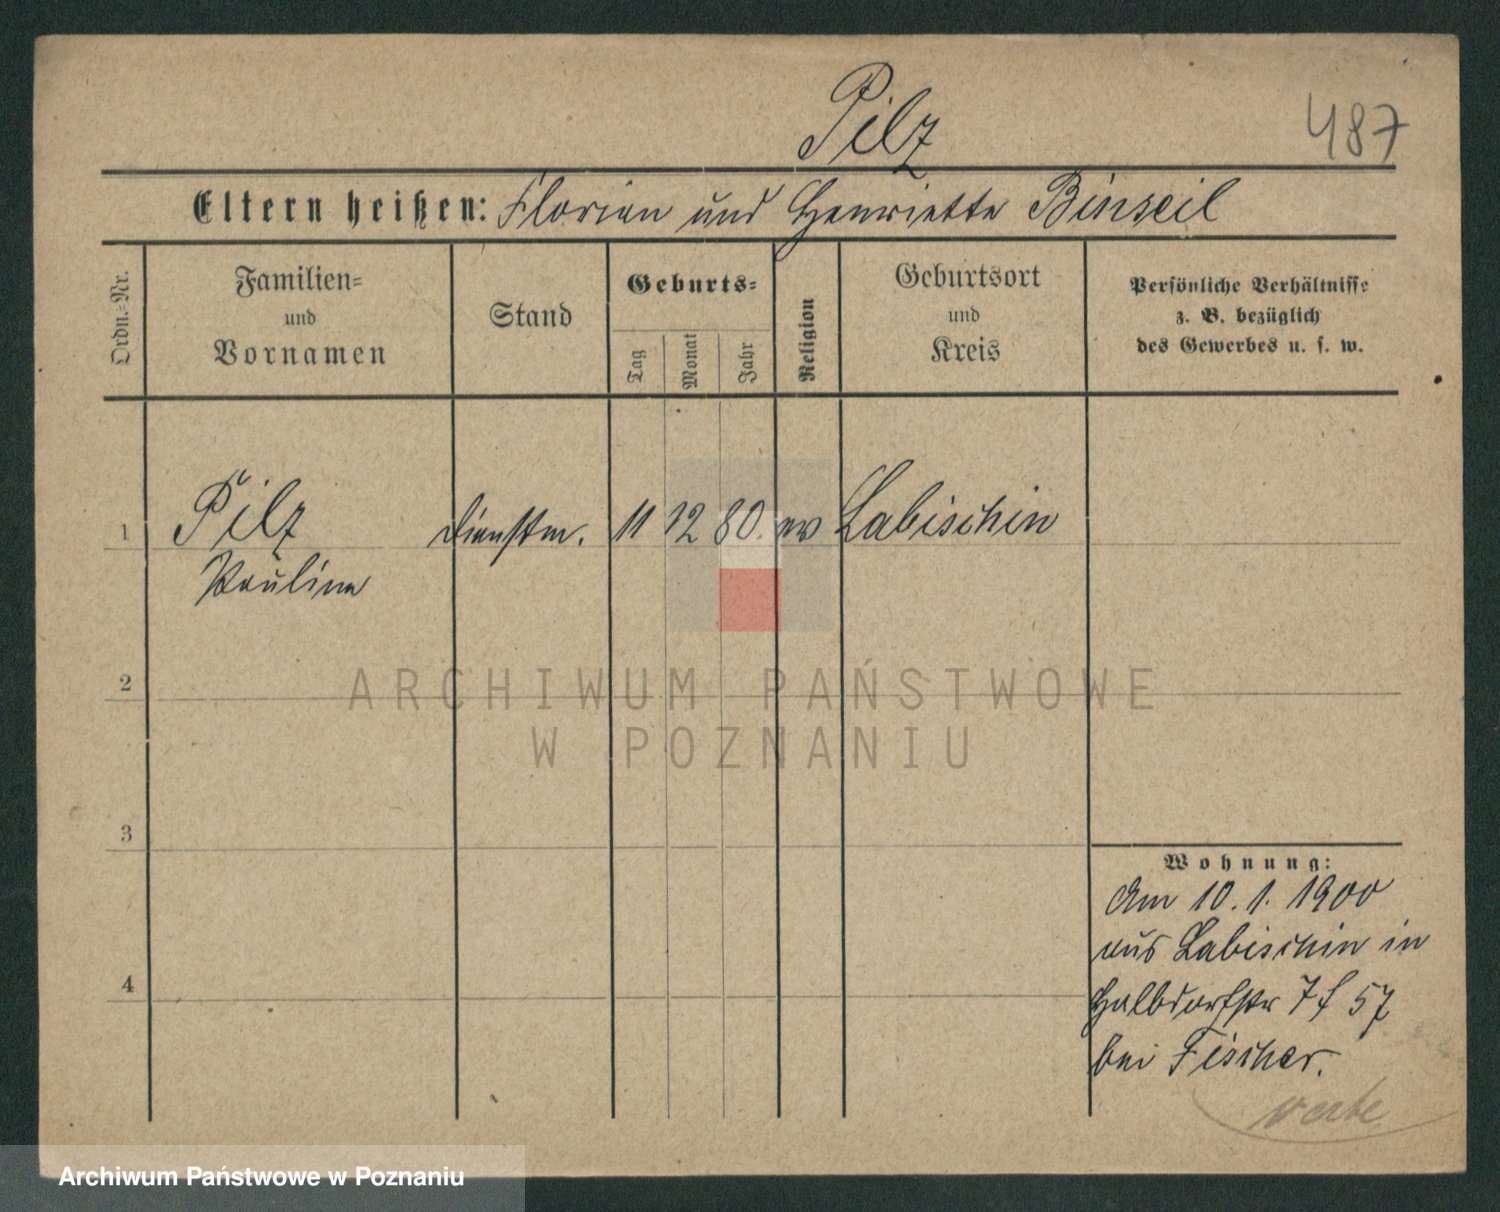 Pilz
487
Eltern heißen: Florian und Henriette Binseil
Ordn.-Nr.
Familien-
und
Vornamen
Stand
Geburts-
Tag
Monat
Jahr
Religion
Geburtsort
und
Kreis
Persönliche Verhältnisse
z. B. bezüglich
des Gewerbes u. s. w.
1 Pilz Dienstm. 11 12 80. ev Labischin
Pauline
2
3
4
ARCHIWUM PAŃSTWOWE
W POZNANIU
Wohnung:
Am 10. 1. 1900
aus Labischin in
Halbdorfstr 7 f 57
bei Fischer.
Archiwum Państwowe w Poznaniu